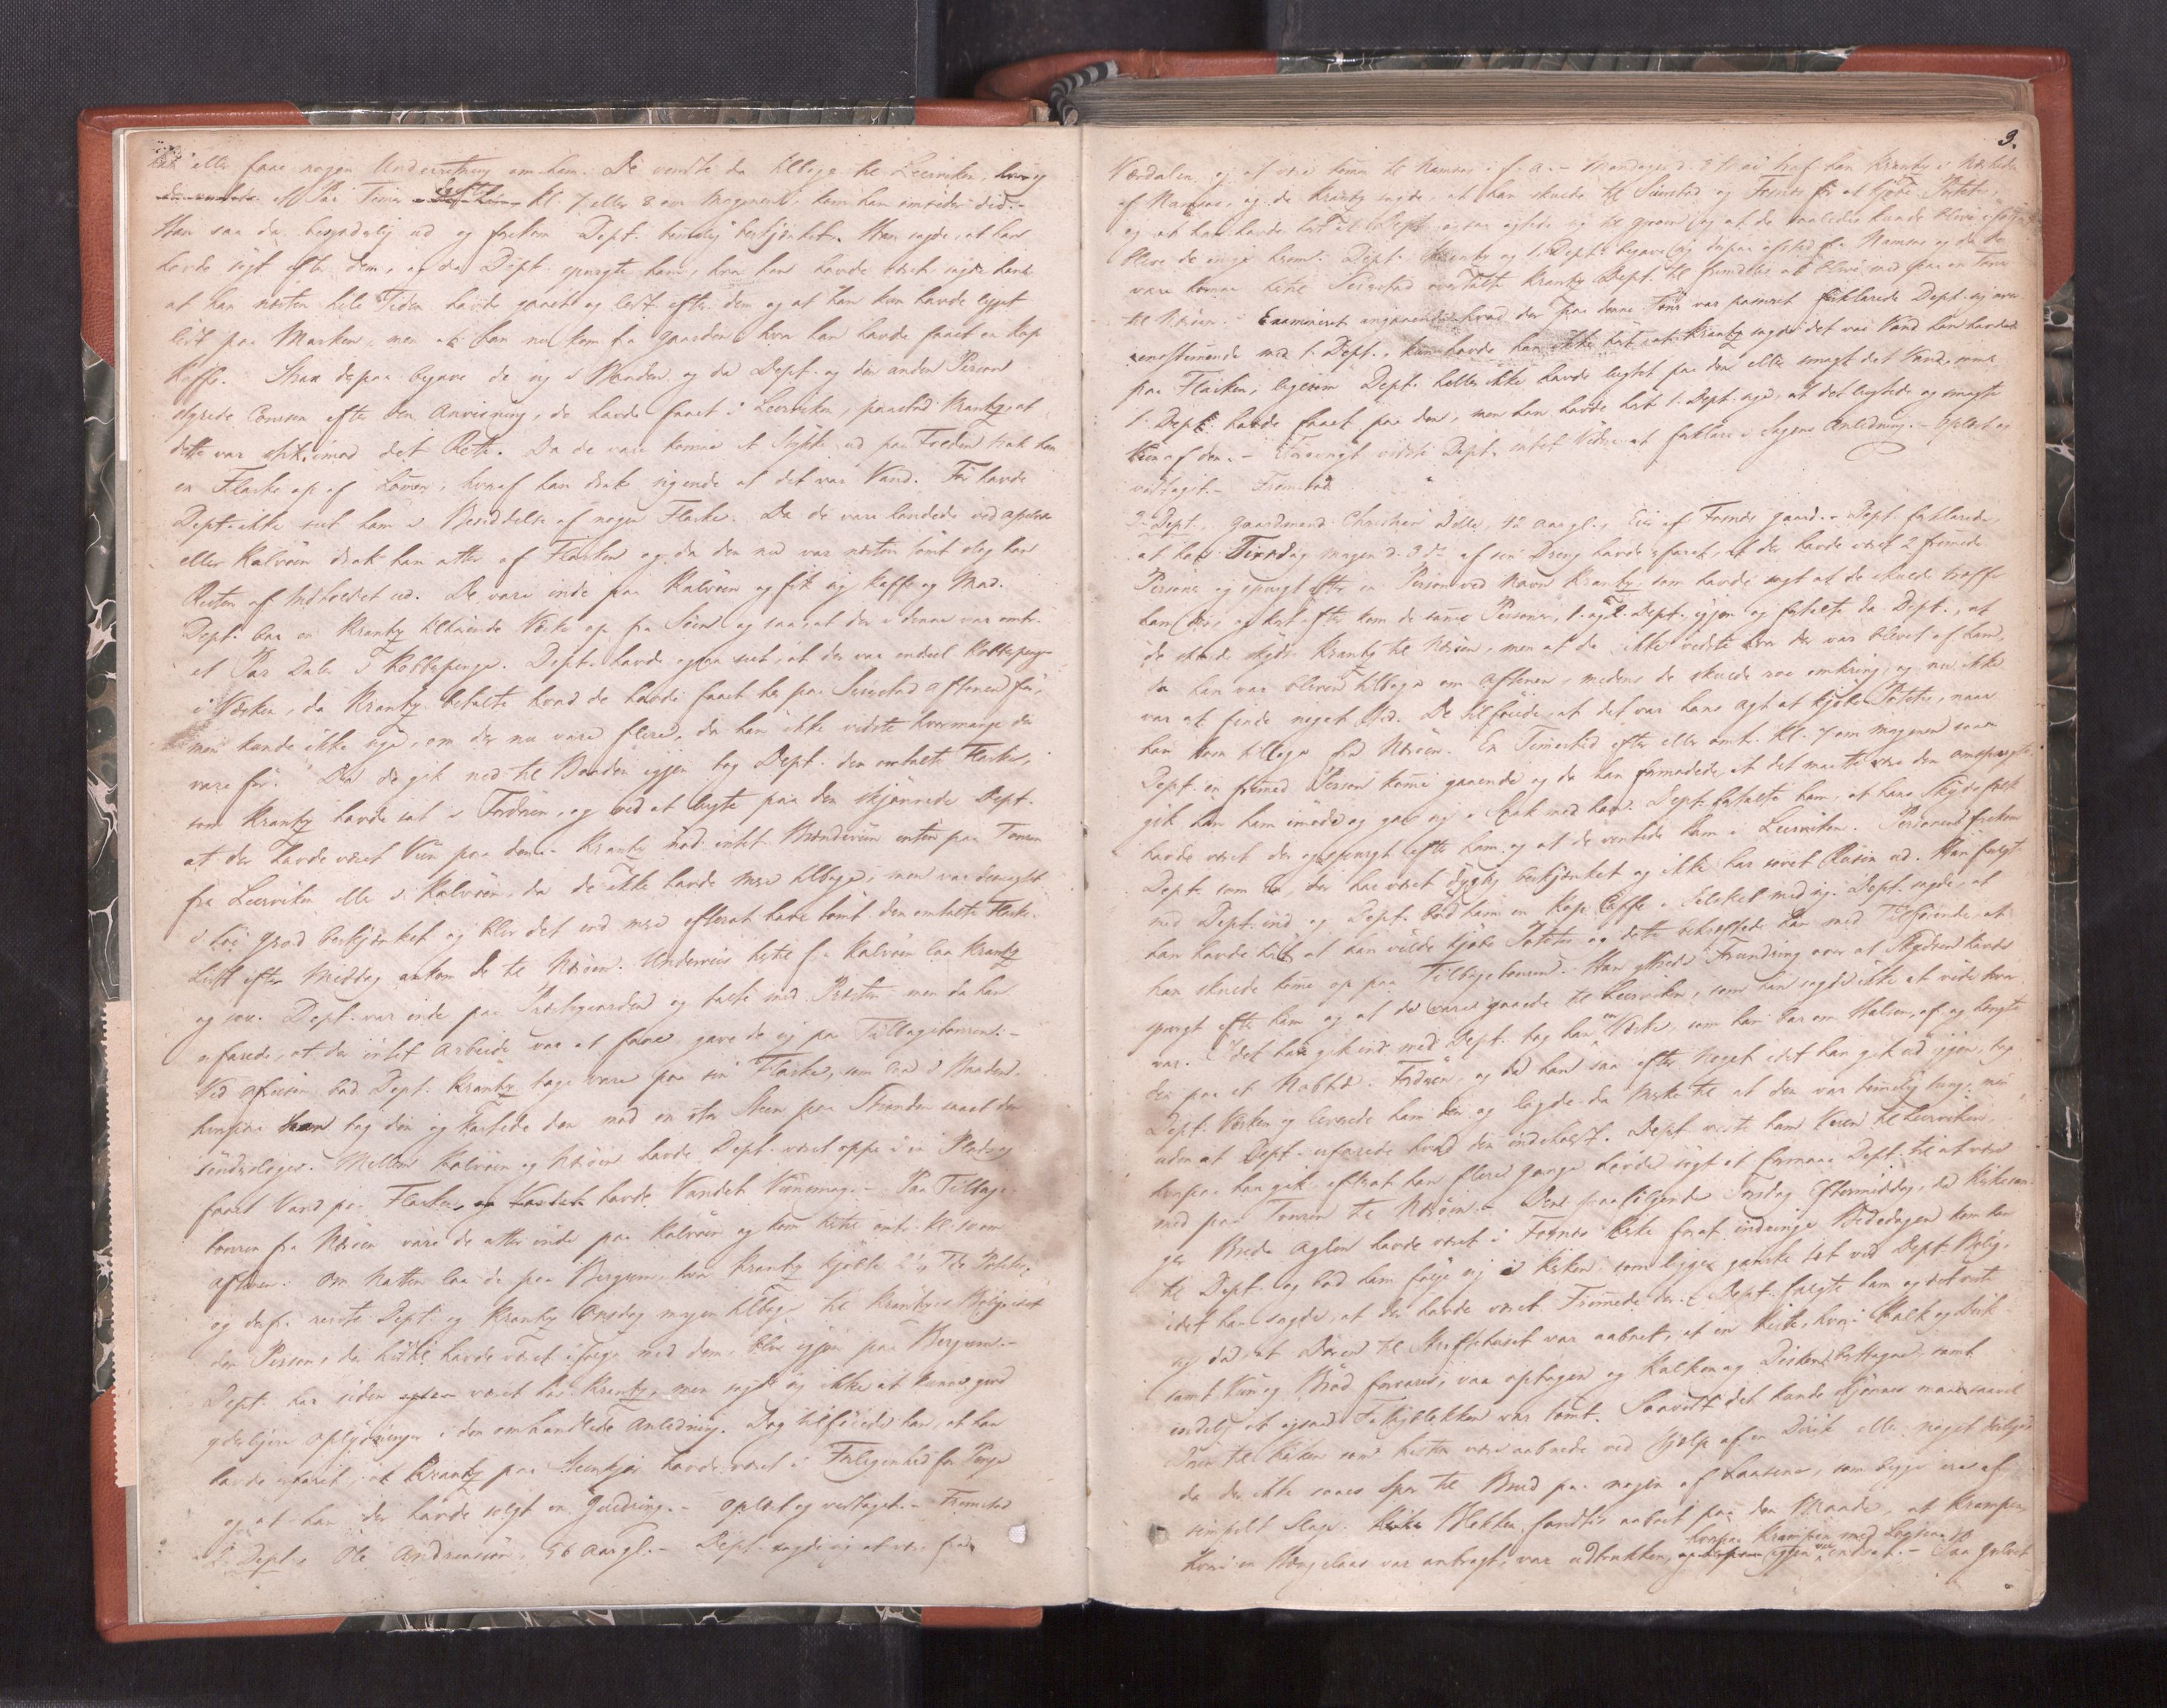 eller faae nogen Underretning om ham. De vendte da tilbage til Leerviken, hvorog
et Par Timer efter Kl. 7 eller 8 om Morgenen, kom han omsider did.-
Han saa da besynderlig ud og forekom Dept. temmelig beskjænket. Han sagde, at han
havde søgt efter dem, og da Dept. spurgte ham, hvor han havde været sagde han
at han næsten hele Tiden havde gaaet og ledt efter dem og at han kun havde ligget
lidt paa Marken, men at han nu kom fra Gaarden hvor han havde faaet en Kop
Kaffe. Strax derpaa begave de sig i Baaden og da Dept. og den anden Person
styrede Coursen efter den Anviisning, de havde faaet i Leerviken, paastod Krantz, at
dette var stik imod det Rette. Da de vare komne et Stykke ud paa Fjorden trak han
en Flaske op af Lommen, hvoraf han drak sigende at det var Vand. Før havde
Dept. ikke seet ham i Besiddelse af nogen Flaske. Da de vare landede ved
eller Kalvøen drak han atter af Flasken og da den nu var næsten tømt slog han
Resten af Indholdet ud. De vare inde paa Kalvøen og fik sig Kaffe og Mad.
Dept. bar en Krantz tilhørende Væske op fra Søen og saa at der i denne var omtr.
et Par Daler i Kobberpenge. Dept. havde ogsaa seet, at der var endeel Kobberpenge
i Væsken, da Krantz betalte hvad de havde faaet her paa Seierstad Aftenen før,
men kunde ikke sige, om der nu vare flere, da han ikke vidste hvormange der
vare før. Da de gik ned til Baaden igjen tog Dept. den omtalte Flaske,
som Krantz havde sat i Fordøren, og ved at lugte paa den skjønnede Dept.
at der havde været Viin paa den. Krantz nød intet Brændeviin enten paa Touren
fra Leerviken eller i Kalvøen, da de ikke havde mere tilbage, men var desuagtet
i høi Grad beskjænket og blev det end mere efterat have tømt den omtalte Flaske.
Lidt efter Middag ankom de til Nærøen. Underveis hertil fra Kalvøen laa Krantz
og sov. Dept. var inde paa Præstegaarden og talte med Præsten men da han
erfarede, at der intet Arbeide var at faae, gave de sig paa Tilbagetouren.-
Ved Afreisen bad Dept. Krantz tage vare paa sin Flaske, som laa i Baaden
hvorpaa han tog den og kastede den mod en stor Steen paa Stranden saaat den
søndersloges. Mellem Kalvøen og Nærøen havde Dept. været oppe i en Plads og
faaet Vand paa Flasken, og havde Vandet Viinsmag.- Paa Tilbage-
touren fra Nærøen vare de atter inde paa Kalvøen og kom hertil omtr. Kl.
Aftenen. Om Natten laa de paa Bergum, hvor Krantz kjøbte Tde Poteter
og derfra reiste Dept. og Krantz Onsdag Morgen tilbage til
den Person, der hidtil havde været ifølge med dem, blev igjen paa Bergum.-
Dept. har siden været hos Krantz, men sagde sig ikke at kunne give
yderligere Oplysninger i den omhandlede Anledning. Dog tilføiede han, at han
havde erfaret, at Krantz paa Steenkjær havde været i Forlegenhed for Penge
og at han der havde solgt en Guldring.- Oplæst og vedtaget.- Fremstod
2. Dept., Ole Andreassen, 56 Aar gl.- Dept. sagde sig at være fra
3.
Værdalen og at være kommen til Namsos i f. A.- Mandagen d. traf han Krantz i Nærheden
af Namsos, og da Krantz sagde, at han skulde til Seierstad og Fosnes for at kjøbe Poteter,
vare komne hertil Seierstad overtalte Krantz Dept. til fremdeles at blive med paa en Tour
til Nærøen. Examineret angaaende hvad der paa denne Tour var passeret forklarede Dept. sig over-
eenstemmende med 1. Dept., kun havde han ikke hørt, at Krantz sagde det var Vand han havde
paa Flasken, ligesom Dept. heller ikke havde lugtet paa den eller smagt det Vand, som
1. Dept. havde faaet paa den, men han havde hørt 1. Dept. sige, at det lugtede og smagte
Viin af den.- Forøvrigt vidste Dept. intet Videre at forklare i Sagens Anledning.- Oplæst og
vedtaget.- Fremstod
3. Dept., Gaardmand Christian, 42 Aar gl., Eier af Fosnes Gaard.- Dept. forklarede,
at han Tirsdag Morgen d. af sin Dreng havde erfaret, at der havde været 2 fremede
Personer og spurgt efter en Person ved Navn Krantz, som havde sagt at de skulde træffe
ham der, og kort efter kom de samme Personer, 1. og 2. Dept. igjen og fortalte da Dept., at
de skulde skyds Krantz til Nærøen, men at de ikke vidste hvor der var blevet af ham,
da han var bleven tilbage om Aftenen, medens de skulde roe omkring, og nu ikke
var at finde noget Sted. De tilføiede, at det var hans Agt at kjøbe Poteter, naar
han kom tilbage fra Nærøen. En Timestid efter eller omtr. Kl. 7 om Morgenen saae
Dept. en fremed Person komme gaaende og da han formodede, at det maatte være den omspurgte
gik han ham imøde og gav sig i Snak med ham. Dept. fortalte ham, at hans Skydsfolk
havde været der og spurgt efter ham og at de ventede ham i Leerviken. Personen forekom
Dept. som en, der har været dygtig beskjænket og ikke har sovet Rusen ud. Han fulgte
med Dept. ind og Dept. bød ham en Kop Caffe i Selskab med sig. Dept. sagde, at
han havde hørt at han vilde kjøbe Poteter og dette bekræftede han med Tilføiende, at
han skulde komme op paa Tilbagetouren. Han yttrede Forundring over at Skydsen havde
spurgt efter ham og at de vare gaaede til Leerviken, som han sagde ikke at vide hvor
var. Idet han gik ind med Dept. tog han en Væske, som han bar om Halsen, af og hængte
den paa et i Fordøren, og da han saa efter Noget idet han gik ud igjen, tog
Dept. Væsken og leverede ham den og lagde da Mærke til at den var temmelig tung, men
uden at Dept. erfarede hvad den indeholdt. Dept. viste ham Veien til Leerviken,
hvorpaa han gik, efterat han flere Gange havde søgt at formaae Dept. til at være
med paa Touren til Nærøen.- Den paafølgende Torsdag Eftermiddag, da Kirkesan-
ger Aglen havde været i Fosnes Kirke for at indringe Bededagen kom han
til Dept. og bad ham følge sig i Kirken, som ligger ganske tæt ved Dept.s Bolig,
idet han sagde, at der havde været Fremede der.- Dept. fulgte ham og det viste
sig da, at Døren til var aabnet, at en Kiste, hvori Kalk og Disk-
samt Viin og Brød forvares, var optagen og Kalken og Disken borttagne samt
endelig at ogsaa Fattigblokken var tømt. Saavidt det kunde skjønnes maae saavel
Døren til Kirken som Kisten være aabnede ved Hjælp af en Dirik eller noget deslige
da der ikke saaes Spor til Brud paa nogen af Laasene, som begge ere af
simpelt Slags. Blokken fandtes aabnet paa den Maade, at Krampen,
hvori en Hængelaas var anbragt, var udtrukken, hvorpaa Krampen med Laasen var igjen indsat.- Paa Gulvet